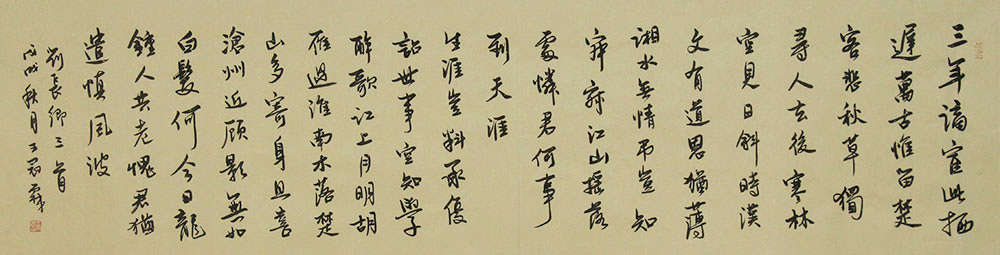 三年謫宦此栖
遲萬古惟留楚
客悲秋草獨
尋人去後寒林
空見日斜時漢
文有道恩猶薄
湘水無情弔豈知
寂寂江山摇落
處憐君何事
到天涯
生涯豈料承優
詔世事空知學
醉歌江上月明胡
雁過淮南水落楚
山多寄身且喜
滄州近顧影無如
白髮何今日龍
鐘人共老愧君猶
遣慎風波
劉長卿
戊戌秋月